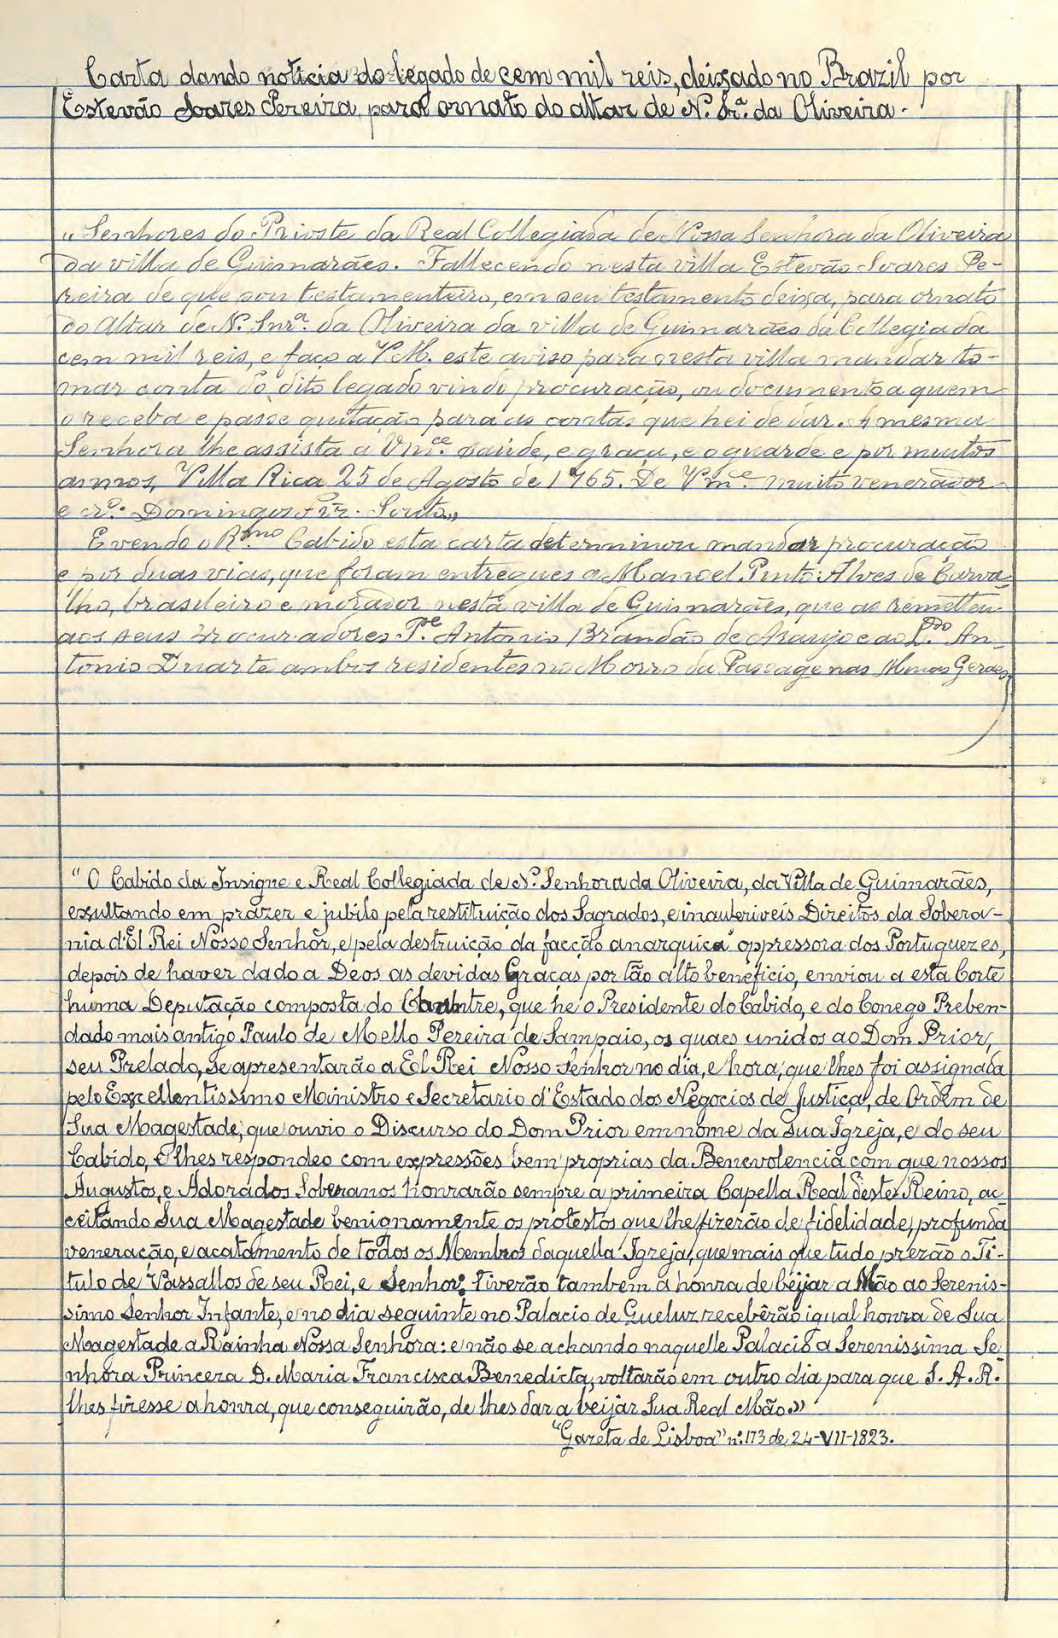 Carta dando noticia do legado de cem mil reis, deixado no Brazil por
Estevão Soares Pereira, para ornato do altar de N. Sr.ª da Oliveira.
"Senhores do Prioste da Real Collegiada de Nossa Senhora da Oliveira
da villa de Guimarães. Fallecendo nesta villa Estevão Soares Pe-
reira de que sou testamenteiro, em seu testamento deixa, para ornato
do Altar de N. Snrª. da Oliveira da villa de Guimarães da Collegiada
cem mil reis, e faço a V.M. este aviso para nesta villa mandar to-
mar conta do dito legado vindo procuração, ou documento a quem
o receba e passe quitação para as contas que hei de dar. A mesma
Senhora lhe assista a Vm.ce saúde, e graça, e o guarde e por muitos
annos, Villa Rica 25 de Agosto de 1765. De Vm.ce muito venerador
e cr.º Domingos Frz. Souto„
E vendo o R.mo Cabido esta carta determinou mandar procuração
e por duas vias, que foram entregues a Manoel Pinto Alves de Carva-
lho, brasileiro e morador nesta villa de Guimarães, que as remetteu
aos seus Procuradores P.e Antonio Brandão de Araujo e ao L.do An-
tonio Duarte ambos residentes no Morro da Passage nas Minas Geraes
"O Cabido da Insigne e Real Collegiada de N.ª Senhora da Oliveira, da Villa de Guimarães,
exultando em prazer e jubilo pela restituição dos Sagrados, e inauferiveis Direitos da Sobera-
nia d'El Rei Nosso Senhor, e pela destruição da facção anarquica oppressora dos Portuguezes,
depois de haver dado a Deos as devidas Graças por tão alto beneficio, enviou a esta Corte
huma Deputação composta do Chantre, que he o Presidente do Cabido, e do Conego Preben-
dado mais antigo Paulo de Mello Pereira de Sampaio, os quaes unidos ao Dom Prior,
seu Prelado, se apresentarão a El Rei Nosso Senhor no dia, e hora, que lhes foi assignada
pelo Excellentissimo Ministro e Secretario d'Estado dos Negocios de Justiça, de Ordem de
Sua Magestade, que ouvio o Discurso do Dom Prior em nome da sua Igreja, e do seu
Cabido, e lhes respondeo com expressões bem proprias da Benevolencia com que nossos
Augustos, e Adorados Soberanos honrarão sempre a primeira Capella Real deste Reino, ac-
ceitando Sua Magestade benignamente os protestos que lhe fizerão de fidelidade, profunda
veneração, e acatamento de todos os Membros daquella Igreja, que mais que tudo prezão o Ti-
tulo de Vassallos de seu Rei, e Senhor. Tiverão tambem a honra de beijar a Mão ao Serenis-
simo Senhor Infante, e no dia seguinte no Palacio de Queluz receberão igual honra de Sua
Magestade a Rainha Nossa Senhora: e não se achando naquelle Palacio a Serenissima Se-
nhora Princeza D. Maria Francisca Benedicta, voltarão em outro dia para que S. A. R.
lhes fizesse a honra, que conseguirão, de lhes dar a beijar Sua Real Mão."
"Gazeta de Lisboa" n.º 173 de 24-VII-1823.